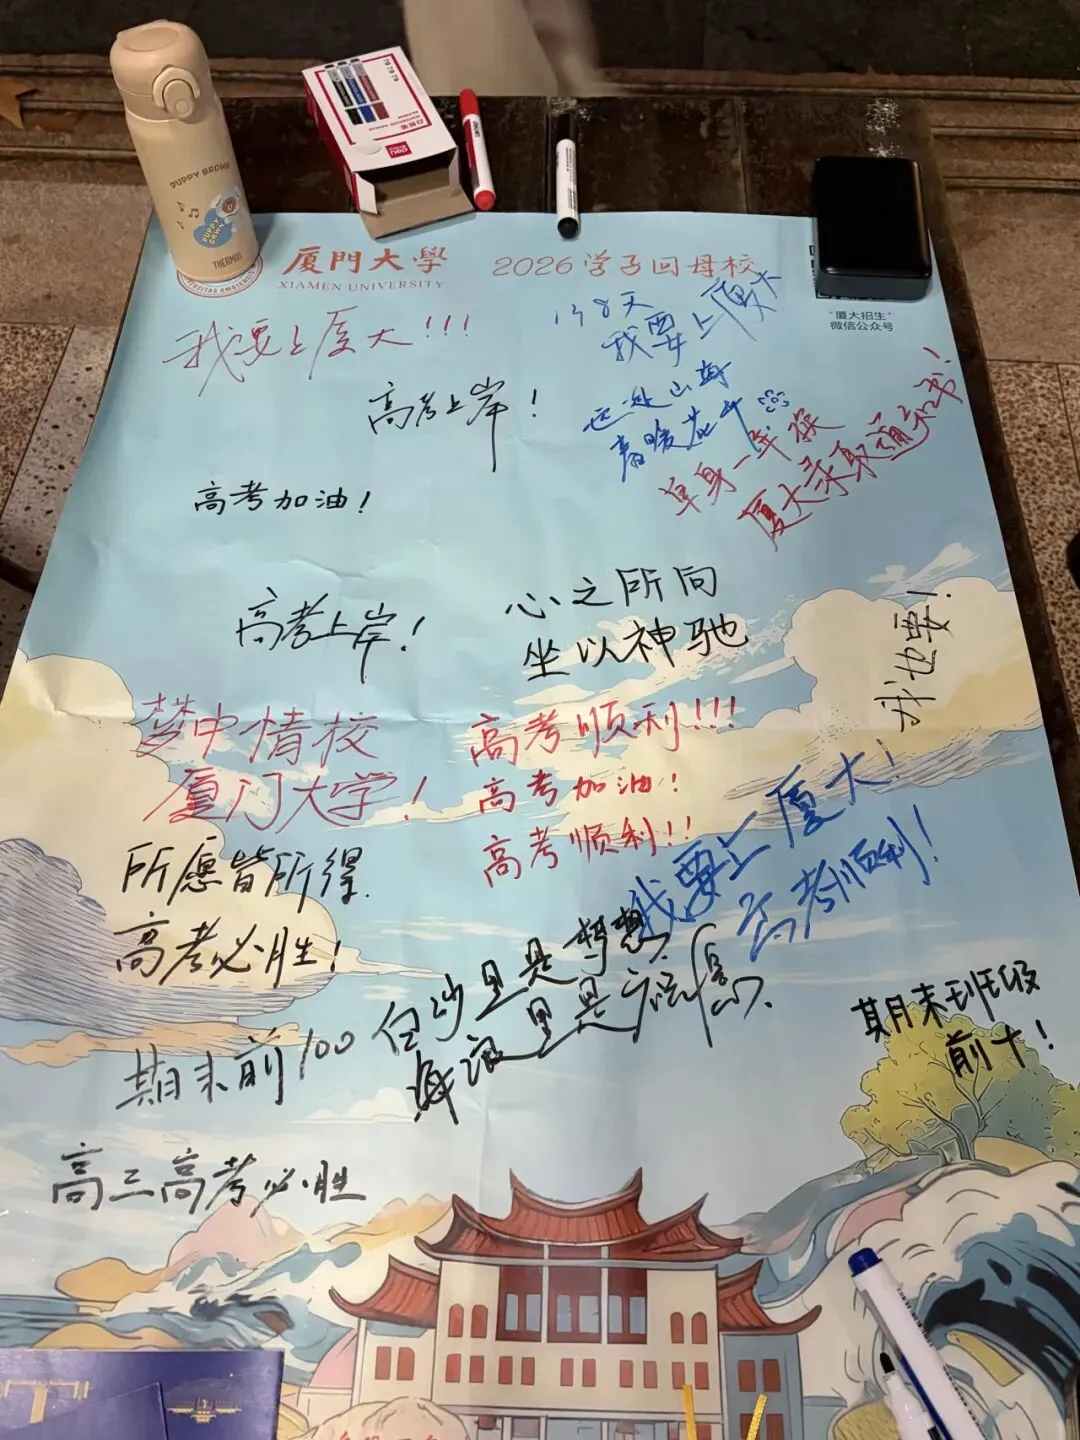 PUPPY BROWN
PUPPY
BROWN
THERMOS
白板笔
WHITEBOARD MARKER
deli
厦門大學
XIAMEN UNIVERSITY
2026学子回母校
"厦大招生"
微信公众号
我要上厦大!!!
138天
我要上厦大
高考上岸!
远赴山海
春暖花开
单身一年换
厦大录取通知书!
高考加油!
高考上岸!
心之所向
坐以神驰
我也要!
梦中情校
厦门大学!
高考顺利!!!
高考加油!
高考顺利!!
我要上厦大!
高考顺利!
所愿皆所得.
高考必胜!
白沙里是梦想
海浪里是
期末前100
期末班级
前十!
高三高考必胜